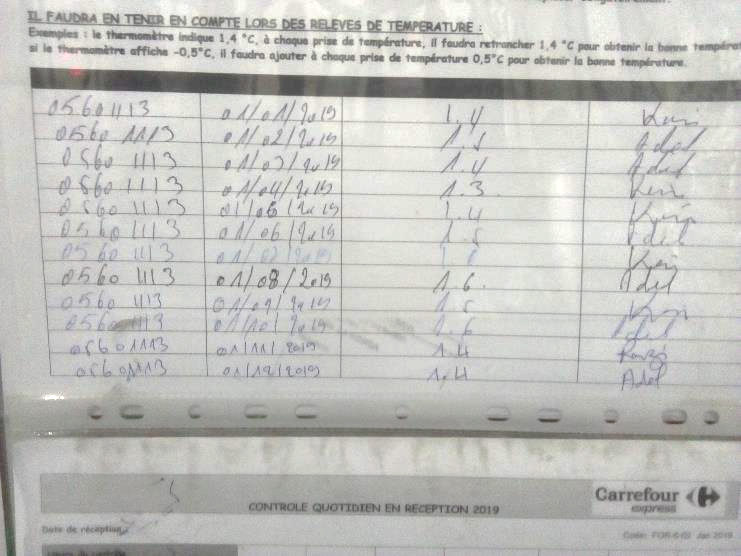 IL FAUDRA EN TENIR EN COMPTE LORS DES RELEVES DE TEMPERATURE :
Exemples : le thermomètre indique 1,4 °C, à chaque prise de température, il faudra retrancher 1,4 °C pour obtenir la bonne températ
si le thermomètre affiche -0,5°C, il faudra ajouter à chaque prise de température 0,5°C pour obtenir la bonne température.
05601113 01/01/2019 1.4
05601113 01/02/2019 1.5 Adel
05601113 01/03/2019 1.4 Adel
05601113 01/04/2019 1.3
05601113 01/05/2019 1.4
05601113 01/06/2019 1.5 Adel
05601113 01/07/2019
05601113 01/08/2019 1.6 Adel
05601113 01/09/2019 1.5
05601113 01/10/2019 1.6 Adel
05601113 01/11/2019 1.4
05601113 01/12/2019 1.4 Adel
CONTROLE QUOTIDIEN EN RECEPTION 2019
Carrefour
express
Date de réception :
Code: FOR-6-03 Jan 2019